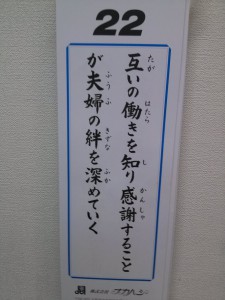 22
互いの働きを知り感謝すること
たが はたら し かんしゃ
が夫婦の絆を深めていく
ふうふ きずな ふか
株式会社